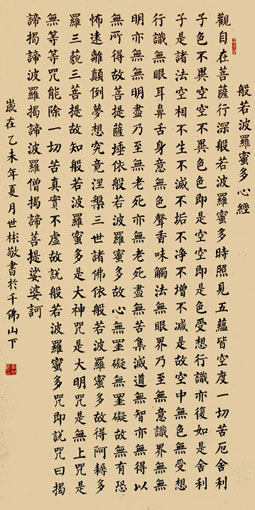 般若波羅蜜多心經
觀自在菩薩行深般若波羅蜜多時照見五蘊皆空度一切苦厄舍利
子色不異空空不異色色即是空空即是色受想行識亦復如是舍利
子是諸法空相不生不滅不垢不淨不增不減是故空中無色無受想
行識無眼耳鼻舌身意無色聲香味觸法無眼界乃至無意識界無無
明亦無無明盡乃至無老死亦無老死盡無苦集滅道無智亦無得以
無所得故菩提薩埵依般若波羅蜜多故心無罣礙無罣礙故無有恐
怖遠離顛倒夢想究竟涅槃三世諸佛依般若波羅蜜多故得阿耨多
羅三藐三菩提故知般若波羅蜜多是大神咒是大明咒是無上咒是
無等等咒能除一切苦真實不虛故說般若波羅蜜多咒即說咒曰揭
諦揭諦波羅揭諦波羅僧揭諦菩提娑婆訶
歲在乙未年夏月世彬敬書於千佛山下